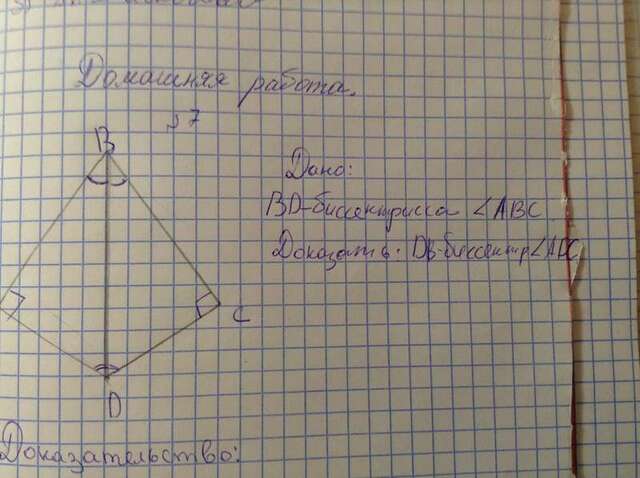 Домашняя работа.
7
B
Дано:
BD-биссектрисса ∠ABC
Доказать: DB-биссектр∠ADC
C
D
Доказательство: